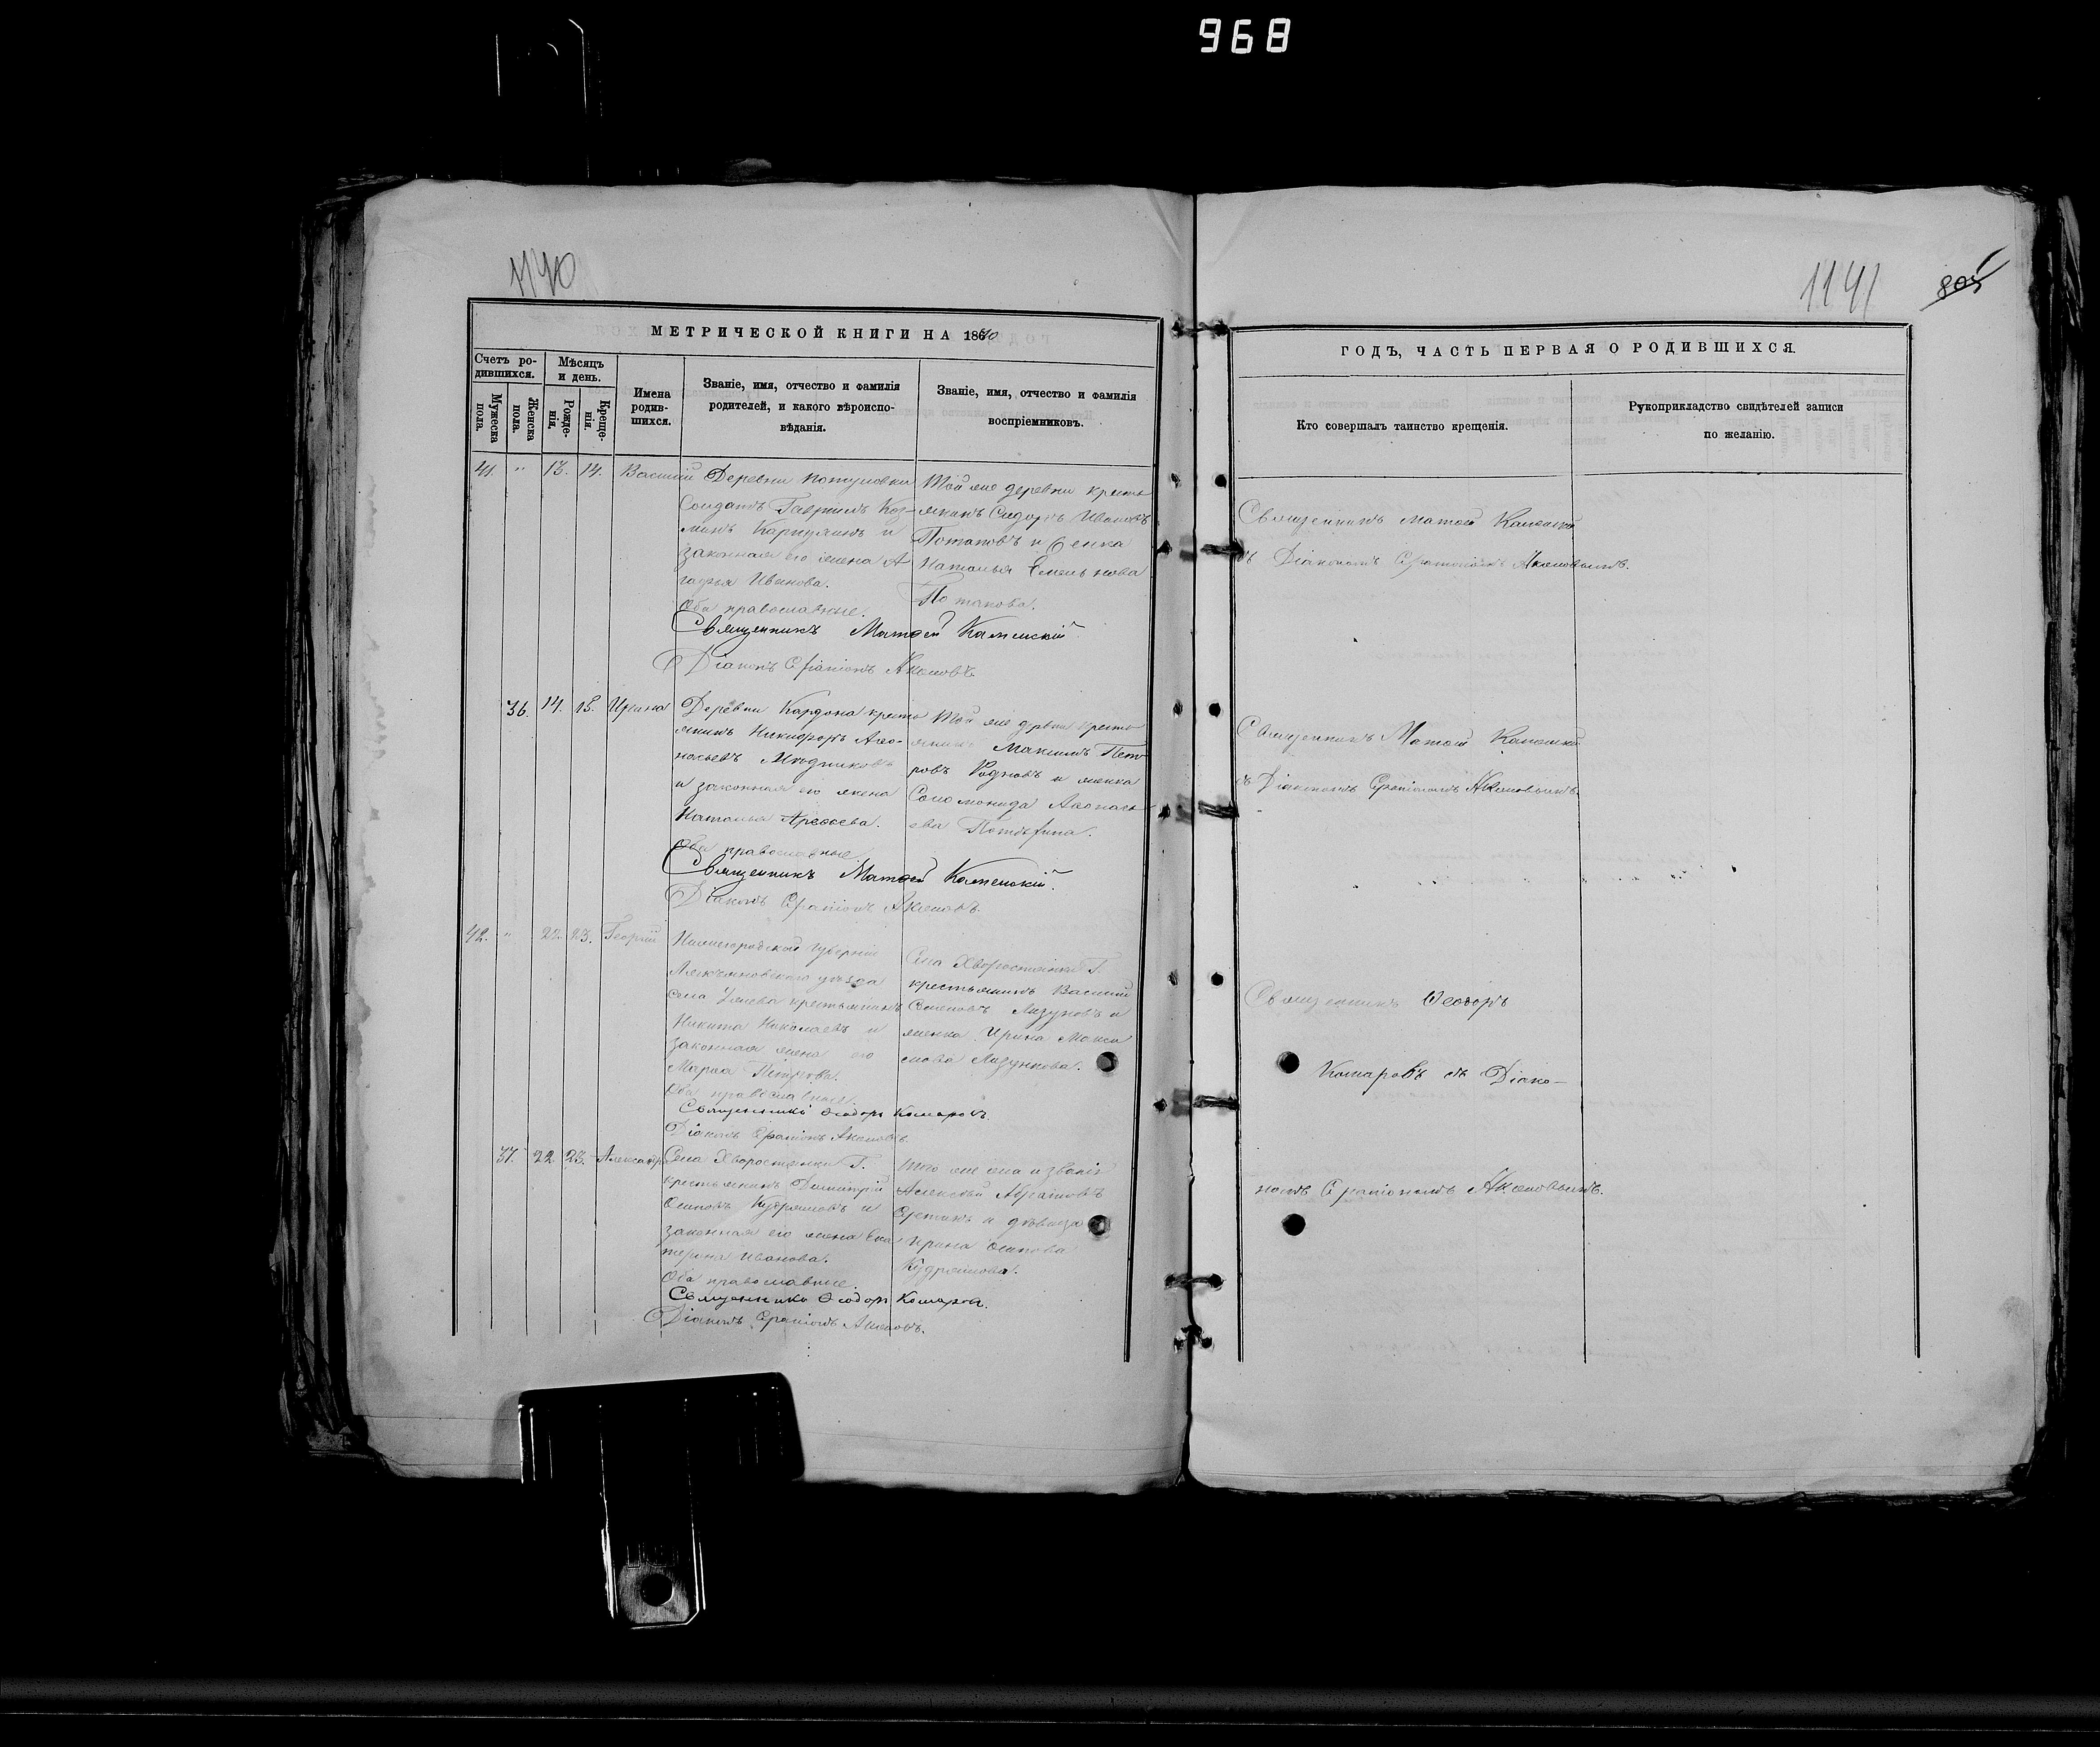 968
1140
МЕТРИЧЕСКОЙ КНИГИ НА 1890
Счетъ ро-
дившихся.
Мѣсяцъ
и день.
Мужеска
пола.
Женска
пола.
Рожде-
нія.
Креще-
нія.
Имена
родив-
шихся.
Званіе, имя, отчество и фамилія
родителей, и какого вѣроиспо-
вѣданія.
Званіе, имя, отчество и фамилія
воспріемниковъ.
41. " 13. 14. Василій
Деревни
Солдатъ Гавріилъ Коз-
минъ и
законная его жена А-
Иванова.
Оба православные.
Той же деревни кресть
янинъ Сидоръ Ивановъ
Потаповъ и
Наталья
Потапова.
Священникъ Матѳей Каменскій
Діаконъ Серапіонъ Аксеновъ.
36. 14. 15. Ирина
Деревни Кордона кресть
янинъ Никифоръ Аѳа-
насьевъ Мѣдниковъ
и законная его жена
Наталья Ареѳьева.
Оба православные.
Той же деревни кресть
янинъ Максимъ Пет
ровъ и женка
Соломонида Аѳанась
ева
Священникъ Матѳей Каменскій.
Діаконъ Серапіонъ Аксеновъ.
42. " 22. 23. Георгій
Нижегородской губерніи
Лукояновскаго уѣзда
села крестьянинъ
Никита Николаевъ и
законная жена его
Марѳа Петрова.
Оба православные.
Села Хворостянки Г.
крестьянинъ Василій
Семеновъ Лизуновъ и
женка Ирина Макси
мова Лизункова.
Священникъ Ѳеодоръ Комаровъ.
Діаконъ Серапіонъ Аксеновъ.
37. 22. 23. Александр
Села Хворостянки Г.
крестьянинъ Димитрій
Осиповъ Кудряшовъ и
законная его жена Ека
терина Иванова.
Оба православные.
Того же села и званія
Алексѣй Абрамовъ
и дѣвица
Ирина Осипова
Кудряшова.
Священникъ Ѳеодоръ Комаровъ.
Діаконъ Серапіонъ Аксеновъ.
1141
805
ГОДЪ, ЧАСТЬ ПЕРВАЯ О РОДИВШИХСЯ.
Кто совершалъ таинство крещенія.
Рукоприкладство свидѣтелей записи
по желанію.
Священникъ Матѳей Каменскій
съ Діакономъ Серапіономъ Аксеновымъ.
Священникъ Матѳей Каменскій
съ Діакономъ Серапіономъ Аксеновымъ.
Священникъ Ѳеодоръ
Комаровъ съ Діако-
номъ Серапіономъ Аксеновымъ.